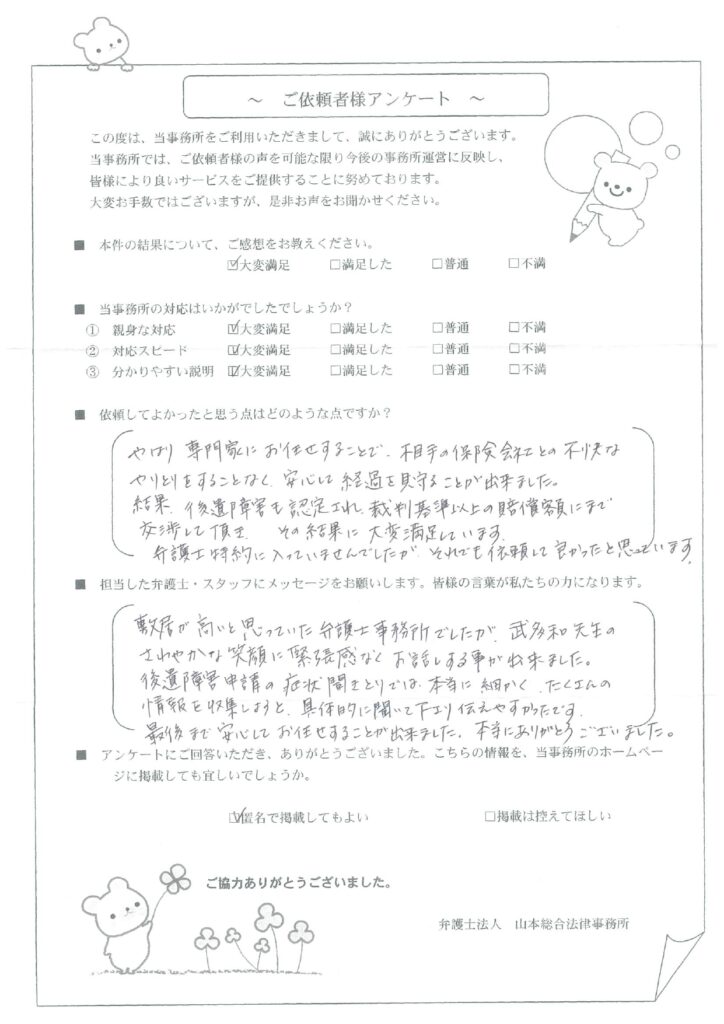 ～ ご依頼者様アンケート ～
この度は、当事務所をご利用いただきまして、誠にありがとうございます。
当事務所では、ご依頼者様の声を可能な限り今後の事務所運営に反映し、
皆様により良いサービスをご提供することに努めております。
大変お手数ではございますが、是非お声をお聞かせください。
■ 本件の結果について、ご感想をお教えください。
☑大変満足 □満足した □普通 □不満
■ 当事務所の対応はいかがでしたでしょうか？
① 親身な対応 ☑大変満足 □満足した □普通 □不満
② 対応スピード ☑大変満足 □満足した □普通 □不満
③ 分かりやすい説明 ☑大変満足 □満足した □普通 □不満
■ 依頼してよかったと思う点はどのような点ですか？
やはり専門家にお任せすることで、相手の保険会社との不快な
やりとりをすることなく、安心して経過を見守ることが出来ました。
結果、後遺障害も認定され、裁判基準以上の賠償額にまで
交渉して頂き、その結果に大変満足しています。
弁護士特約に入っていませんでしたが、それでも依頼して良かったと思っています。
■ 担当した弁護士・スタッフにメッセージをお願いします。皆様の言葉が私たちの力になります。
敷居が高いと思っていた弁護士事務所でしたが、武多和先生の
さわやかな笑顔に緊張感なくお話しする事が出来ました。
後遺障害申請の症状聞きとりでは、本当に細かく、たくさんの
情報を収集しようと、具体的に聞いて下さり伝えやすかったです。
最後まで安心してお任せすることが出来ました。本当にありがとうございました。
■ アンケートにご回答いただき、ありがとうございました。こちらの情報を、当事務所のホームペー
ジに掲載しても宜しいでしょうか。
☑匿名で掲載してもよい □掲載は控えてほしい
ご協力ありがとうございました。
弁護士法人 山本総合法律事務所